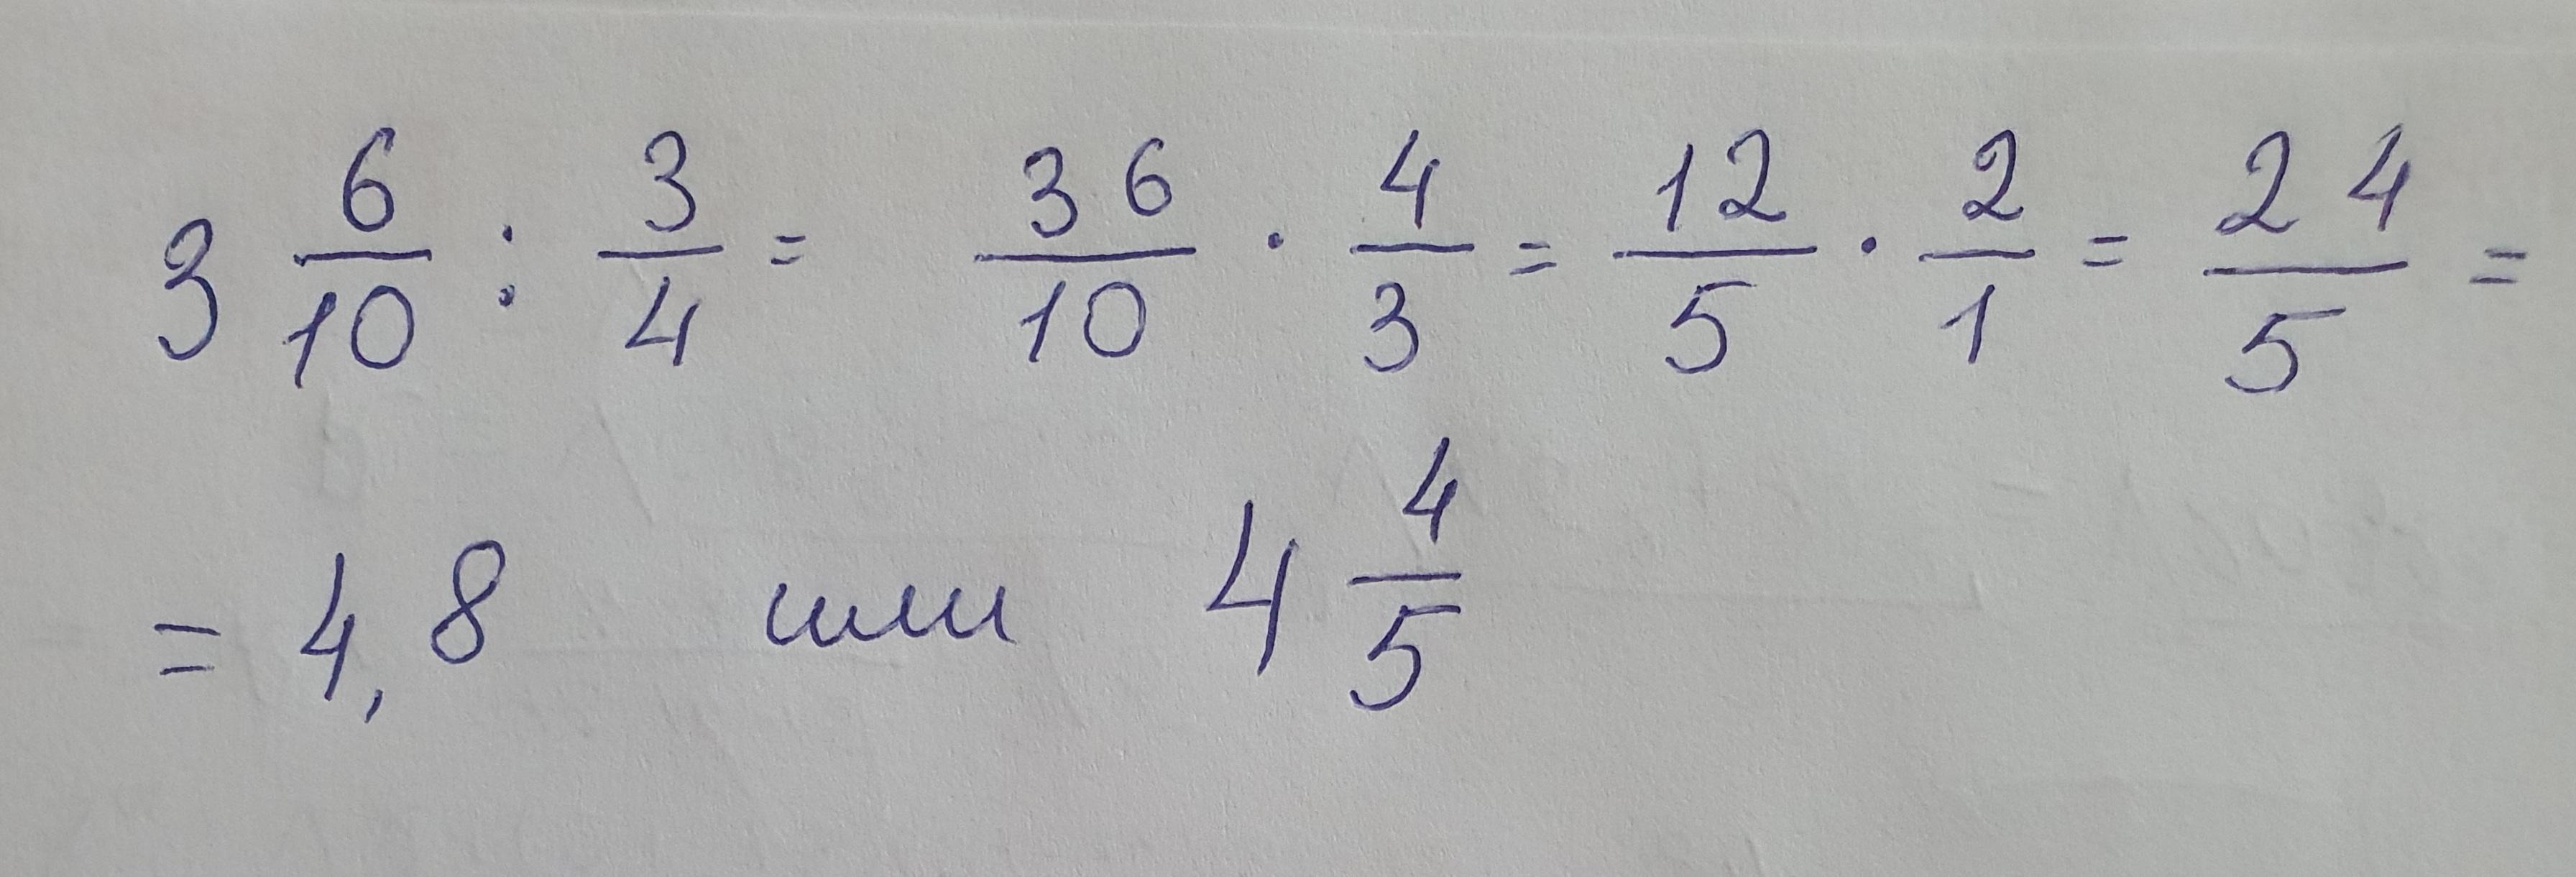 3 6/10 : 3/4 = 36/10 · 4/3 = 12/5 · 2/1 = 24/5 =
= 4,8 или 4 4/5